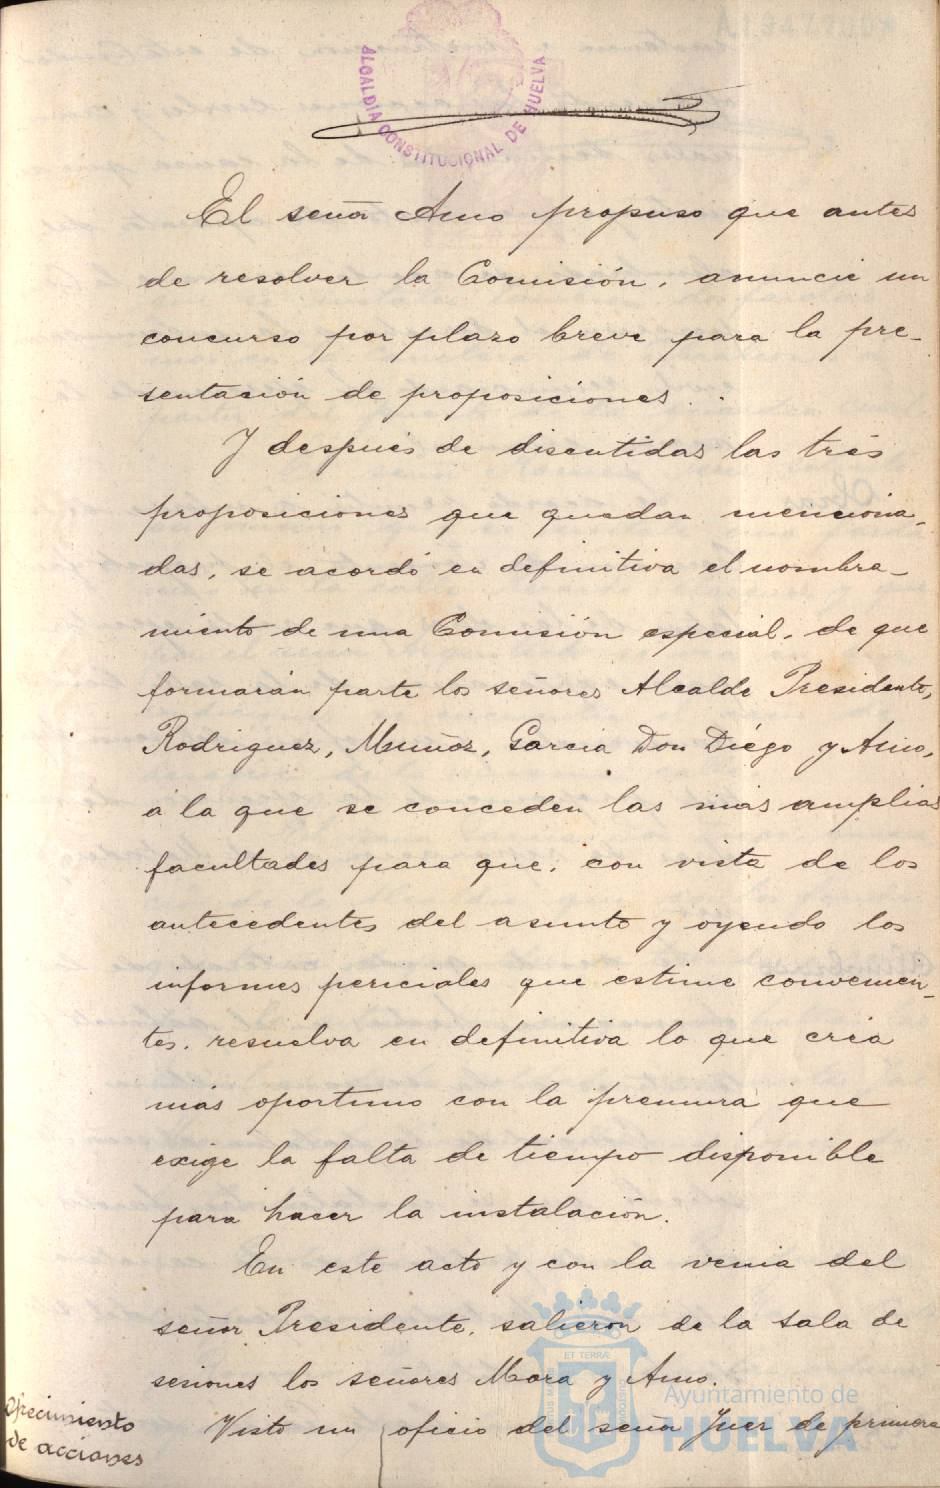 ALCALDIA CONSTITUCIONAL DE HUELVA
El señor Amo propuso que antes
de resolver la Comisión, anuncie un
concurso por plazo breve para la pre-
sentación de proposiciones.
Y después de discutidas las trés
proposiciones que quedan menciona-
das, se acordó en definitiva el nombra-
miento de una Comisión especial, de que
formarán parte los señores Alcalde Presidente,
Rodriguez, Muñoz, Garcia Don Diégo y Amo,
á la que se conceden las más amplias
facultades para que, con vista de los
antecedentes del asunto y oyendo los
informes periciales que estime convenien-
tes, resuelva en definitiva lo que créa
más oportuno con la premura que
exige la falta de tiempo disponible
para hacer la instalación.
En este acto y con la venia del
señor Presidente, salieron de la sala de
sesiones los señores Mora y Amo.
Ofrecimiento
de acciones
Visto un oficio del señor Juez de primera
ET TERRÆ
Ayuntamiento de
HUELVA